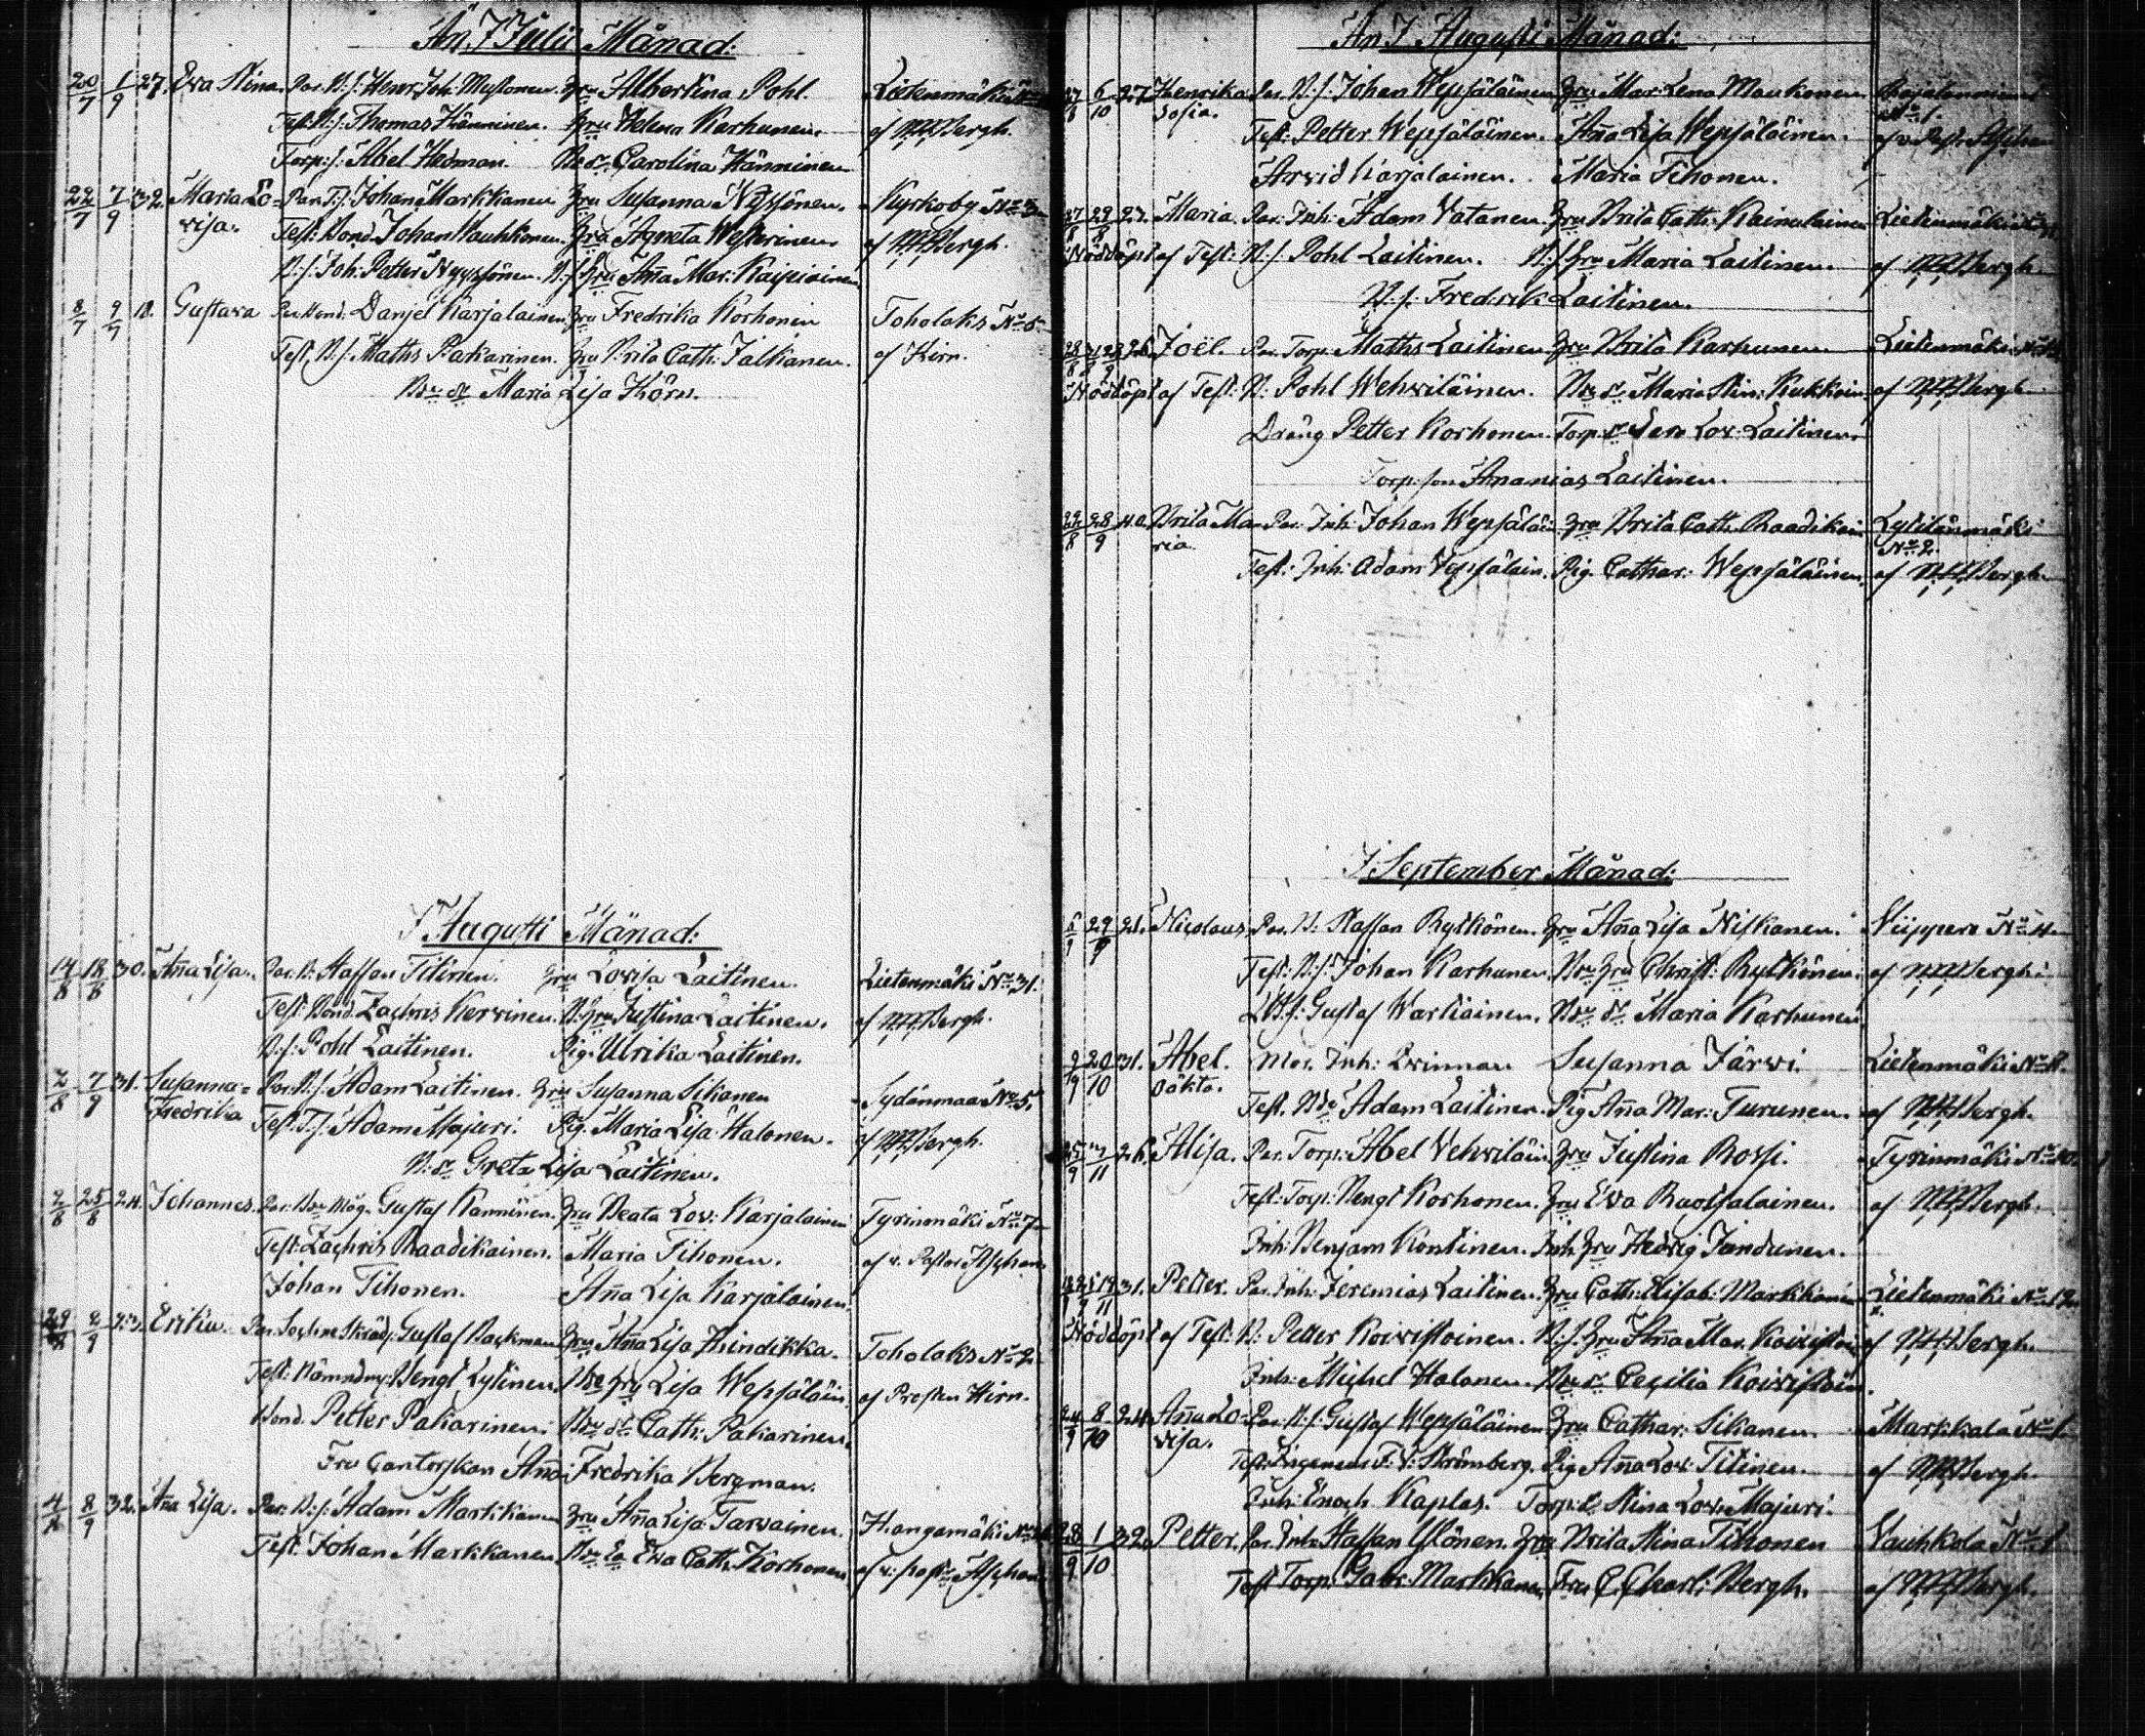 Än I Julii Månad:
20/7 1/9 27. Eva Stina. Par. B.S. Henr. Joh. Mustonen. Hru Albertina Pohl. Lietenmäki
Test. B.S. Thomas Hänninen. Hru Helena Karhunen. af Bergh.
Torp:s: Abel Hedman. Carolina Hänninen
22/7 7/9 32. Maria Lo= Par. T.S. Johan Markkanen Hru Susanna Nyyssönen. Kyrkoby No 3
visa. Test. Bond. Johan Wauhkonen. Hru Agneta Westerinen. af Bergh.
B.S. Joh: Petter Nyyssönen. Hru Aña Mar: Kaipiainen
8/7 9/7 18. Gustava Par. Bond. Danjel Karjalainen Hru Fredrika Korhonen Toholaks No 6
Test. B.S. Maths Pakarinen. Hru Brita Cath. Jalkanen. af Hirn.
Maria Lisa Hörn.
I Augusti Månad:
14/8 18/8 30. Aña Lisa. Par. B: Staffan Titinen. Hru Lovisa Laitinen. Lietenmäki No 31.
Test. Bond. Zachris Kervinen. Hru Justina Laitinen. af Bergh.
B.S: Pohl Laitinen. Pig. Ulrika Laitinen.
2/8 7/9 31. Susanna= Par. B.S. Adam Laitinen. Hru Susanna Sikanen Sydänmaa No 5
Fredrika Test. T.S. Adam Majuri. Pig. Maria Lisa Halonen. af Bergh.
Greta Lisa Laitinen.
2/8 25/8 24. Johannes. Par. Gustaf Hänninen. Hru Beata Lov: Karjalainen Tyrinmäki No 7
Test. Zachris Raadikainen. Maria Tihonen. af v. Pastor Aschan
Johan Tihonen. Aña Lisa Karjalainen.
2/9 Par. Gustaf Backman Hru Aña Lisa Hindikka. Toholaks No 2
Test. Bengt Lytinen. Hru Lisa Wepsäläin. af Prosten Hirn.
Bond. Petter Pakarinen. Cath: Pakarinen.
Fru Cantorskan Aña Fredrika Bergman.
8/9 32. Aña Lisa. Par. B.S. Adam Markkanen Hru Aña Lisa Tarvainen. Hangamäki
Test. Johan Markkanen Eva Cath. Korhonen af v. Past. Aschan
Än I Augusti Månad:
6/10 27 Henrika Par. B.S. Johan Wepsäläinen Hru Mar: Lena Maukonen
Sofia. Test: Petter Wepsäläinen. Aña Lisa Wepsäläinen. af v. Past. Aschan
Arvid Karjalainen. Maria Tihonen.
27/8 29/8 27. Maria. Par. Inh. Adam Vatanen. Hru Brita Cath. Kainulainen Lietenmäki
Nöddöpt af Test: B.S. Pohl Laitinen. Hru Maria Laitinen. af Bergh.
B.S. Fredrik Laitinen.
26 Joël. Par. Torp. Maths Laitinen Hru Brita Karhunen Lietenmäki
Nöddöpt af Test: B. Pohl Wehviläinen. Maria Stin: Kukkoin af Bergh
Dräng Petter Korhonen. Torp. Lov: Laitinen.
Torp. son Ananias Laitinen.
29/8 28/9 40. Brita Ma= Par. Inh. Johan Wepsäläin Hru Brita Cath. Raadikain Lytilänmäki
ria No 2.
Test: Inh: Adam Vepsäläin. Pig. Cathar: Wepsäläinen. af Bergh
I September Månad:
21. Nicolaus. Par. B: Staffan Rytkönen. Hru Aña Lisa Niskanen. Niippera No 4
Test. B.S: Johan Karhunen. Hru Christ: Rytkönen. af Bergh:
Gustaf Wartiainen. Maria Karhunen
9/9 20/10 31. Abel. Mor. Inh: Qvinnan Susanna Järvi. Lietenmäki
oäkta. Test. Adam Laitinen. Pig Aña Mar: Turunen. af Bergh.
25/9 26. Alisa. Par. Torp. Abel Vehviläin Hru Justina Rossi. Tyrinmäki
Test. Torp. Bengt Korhonen. Hru Eva Raotsalainen. af Bergh.
Inh: Benjam Kontinen. Inh. Hru Hedvig Jandunen.
31. Petter. Par. Inh. Jeremias Laitinen. Hru Cath: Elisab: Markkanen Lietenmäki No 12
Nöddöpt af Test: B: Petter Koivistoinen. Hru Aña Mar. Koivistoin af Bergh.
Inh: Michel Halonen. Cecilia Koivistoin.
24/9 8/10 24. Aña Lo= Par. B.S. Gustaf Wepsäläinen Hru Cathar: Sikanen. Markkala No 1
visa. Test. Strömberg. Pig Aña Lov: Titinen. af Bergh.
Inh: Enoch Kaplas. Torp: Stina Lov: Majuri.
28/9 1/10 32. Petter. Par. Inh. Staffan Ylönen. Hru Brita Stina Tihonen Vauhkola No 1
Test. Torp. Gabr: Markkanen Fru C. Charl: Bergh. af Bergh.